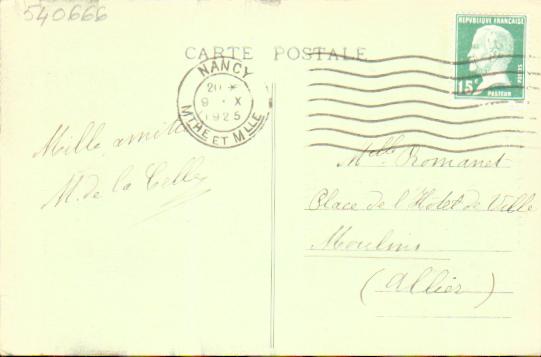 540666
CARTE POSTALE
REPUBLIQUE FRANÇAISE
15c
POSTES
PASTEUR
NANCY
20 *
9 · X
1925
MTHE ET MLLE
Mille amitiés
M. de la Celle
Mlle Romanet
Place de l'Hotel de Ville
Moulins
(Allier)